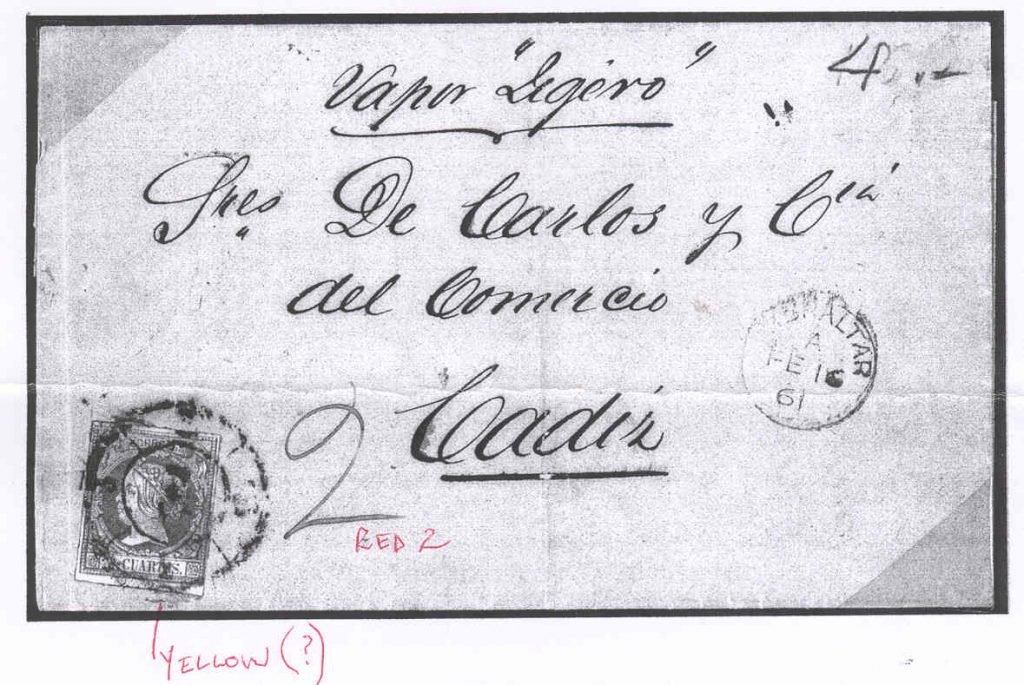 Vapor "Ligero"
Sres De Carlos y Cia
del Comercio
Cadiz
2
RED 2
GIBRALTAR
A
FE 16
61
CORREOS
CUARTOS.
YELLOW (?)